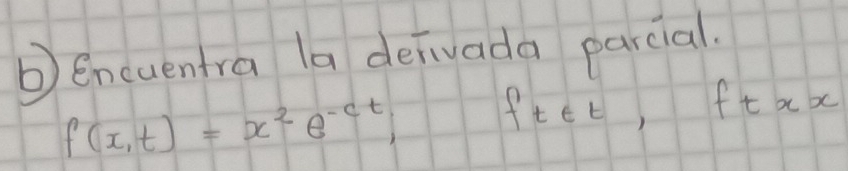 b) Encuentra la derivada parcial.
f(x,t) = x² e^{-ct}; f_{ttt}, f_{txx}